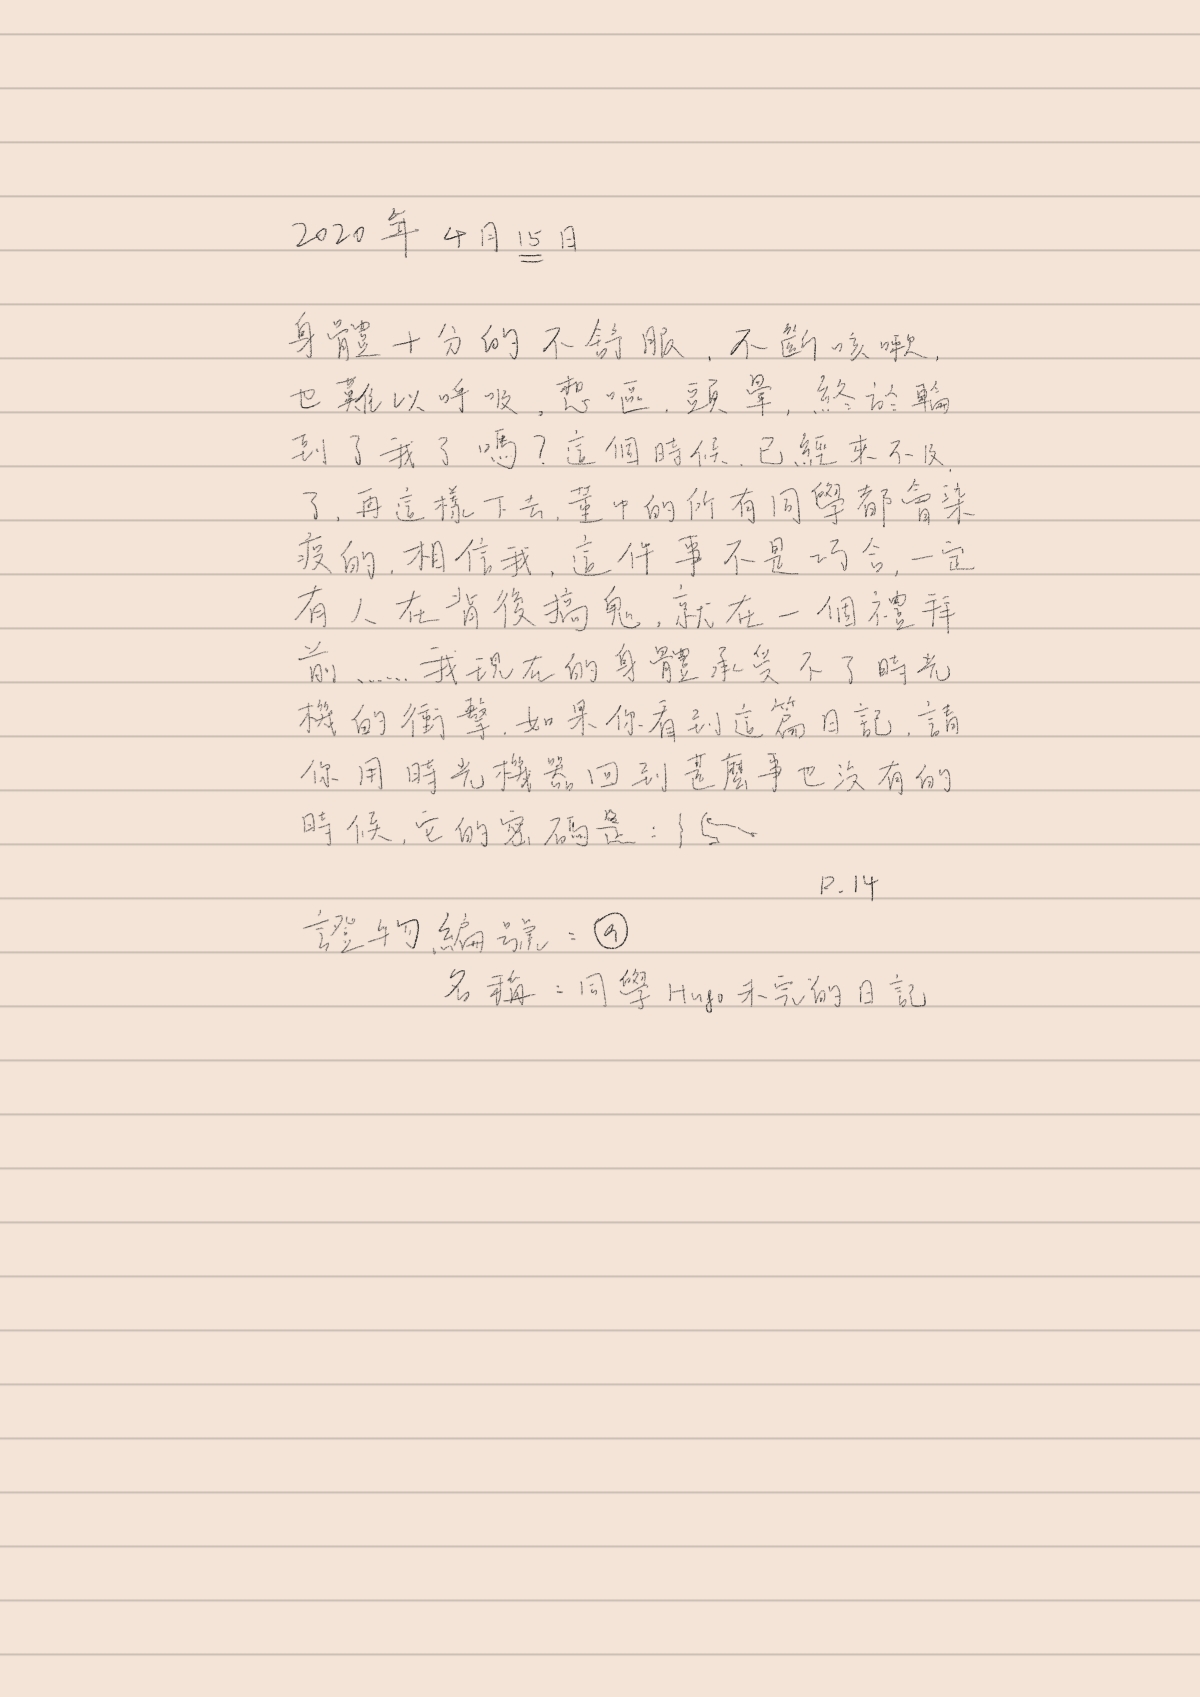 2020年 4月15日
身體十分的不舒服,不斷咳嗽,
也難以呼吸,想嘔,頭暈,終於輪
到了我了嗎?這個時候,已經來不及
了,再這樣下去,董中的所有同學都會染
疫的,相信我,這件事不是巧合,一定
有人在背後搞鬼,就在一個禮拜
前......我現在的身體承受不了時光
機的衝擊,如果你看到這篇日記,請
你用時光機器回到甚麼事也沒有的
時候,它的密碼是:
P.14
證物編號:
名稱:同學Hugo未完的日記